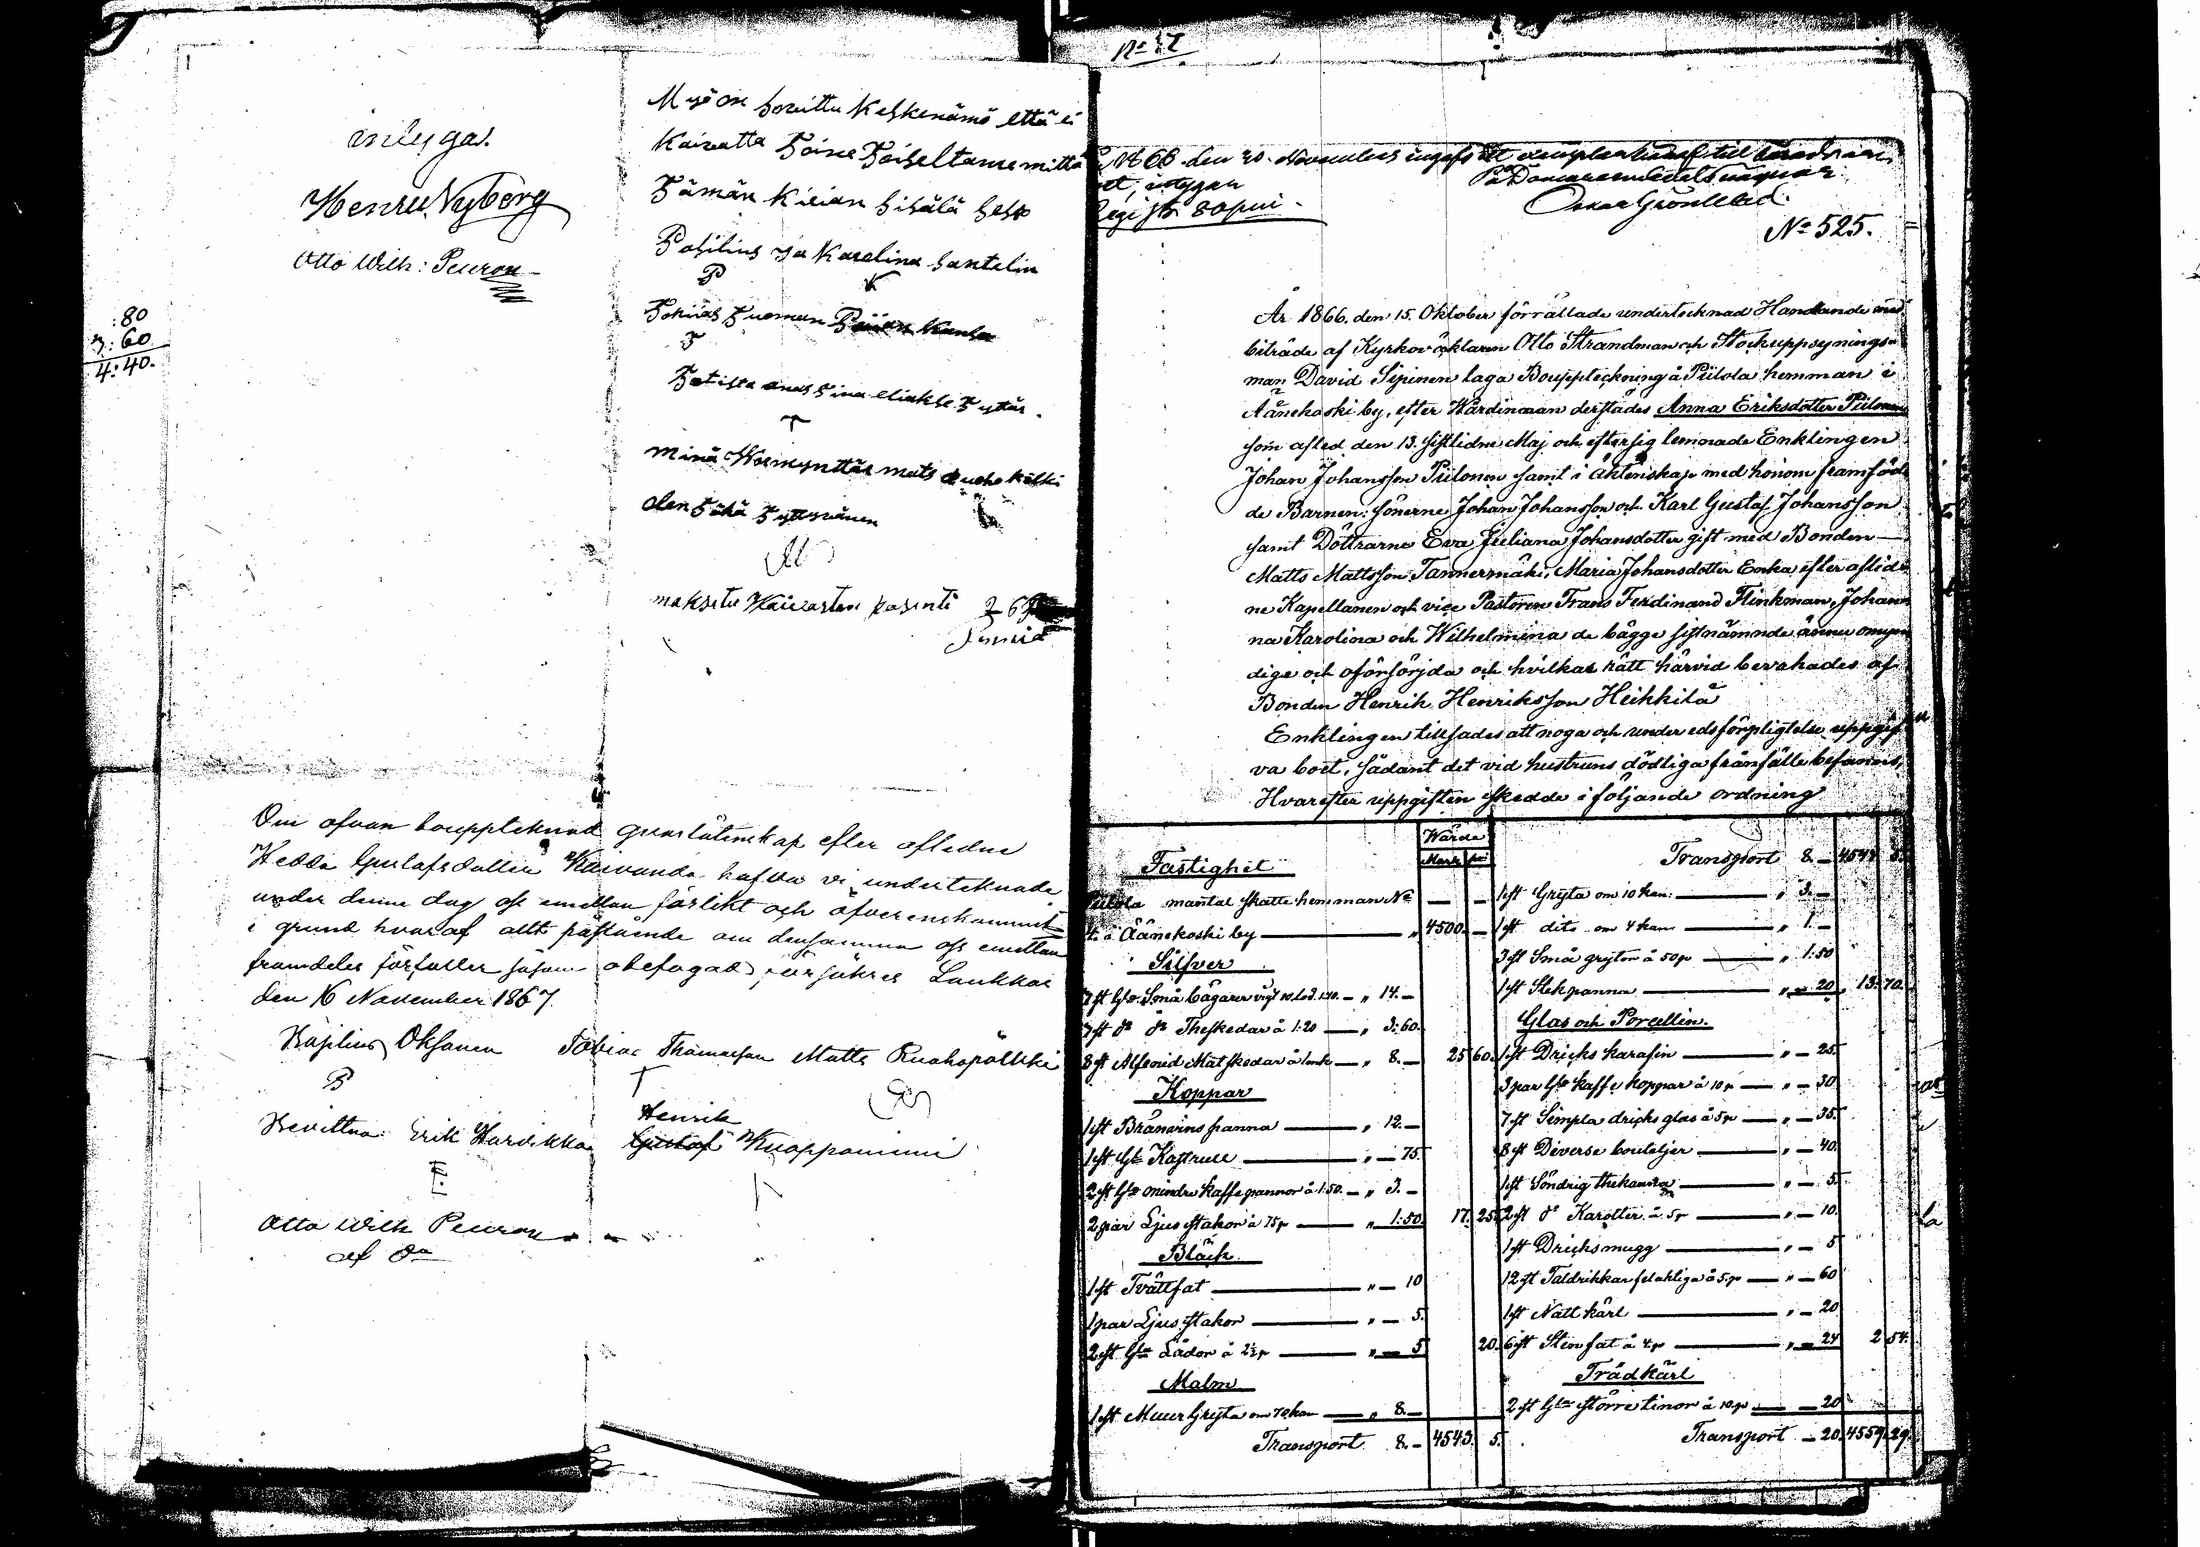 intygar.
Henric Nyberg
Otto Wilh: Peuron
:80
3:60
4:40.
Myö on sovittu keskenämö että ei
Kaivatta Toine Toiseltame mittä
Tämän Kirian sisälä
Pasilius Ja Karolina Santelin
P K
Tobias Tuoman
T
minä Wormynttär mats
olen Tähä Tyttyvänen
maksetu Kaivaston
Om ofvan bouppteknad qvarlåtenskap efter aflidne
Hedda Gustafsdotter Kaivanda hafva vi underteknade
under denne dag oss emellan förlikt och öfverenskommit
i grund hvaraf allt påstående om densamma oss emellan
framdeles förfaller såsom obefogad, försäkras Laukkas
den 16 November 1867.
Basilius Oksanen Tobias Thomasson Matts Ruohopölkki
B T
Bevittna: Erik Harikka Henrik Gustaf Kuoppaniemi
E.
Otto Wilh Peuron
af do
No 52
1866 den 20 November ingafs ett exemplar häraf till
et, intygar På Domareembetets vägnar
80 pni. Oskar Grönblad.
No 525.
År 1866. den 15. Oktober förrättade undertecknad Handlande med
biträde af Kyrkoväktaren Otto Strandman och Stockuppsynings-
man David Sipinen laga Bouppteckning å Piilola hemman i
Äänekoski by, efter Wärdinnan derstädes Anna Eriksdotter Piilonen
som afled den 13. sistlidne Maj och efter sig lemnade Enklingen
Johan Johansson Piilonen samt i äktenskap med honom framföd
de Barnen: Sönerne Johan Johansson och Karl Gustaf Johansson
samt Döttrarne Eva Juliana Johansdotter gift med Bonden
Matts Mattsson Tannermäki, Maria Johansdotter Enka efter aflid
ne Kapellanen och vice Pastoren Frans Ferdinand Flinkman, Johan
na Karolina och Wilhelmina de bägge sistnämnde ännu omyn
dige och oförsörjda och hvilkas rätt härvid bevakades af
Bonden Henrik Henriksson Heikkilä
Enklingen tillsades att noga och under edsförpligtelse uppgif
va boet, sådant det vid hustruns dödliga frånfälle befanns,
Hvarefter uppgiften skedde i följande ordning
Wärde
Mark pi
Fastighet
Piilola mantal skatte hemman No
4. i Äänekoski by " 4500. —
Silfver
7 st Gle Små bägarer vigt 10 lod. 1:40. — " 14. —
7 st do do Theskedar à 1:20 — " 3:60.
8 st Alfenid Matskedar à 1 mk — " 8. — 25 60.
Koppar
1 st Bränvins panna — " 12. —
1 st Gle Kastrull — " — 75.
2 st Gle mindre Kaffepannor à 1:50. — " 3. —
2 par Ljusstakar à 75 p — " 1:50. 17. 25.
Bläck
1 st Tvättfat — " — 10
1 par Ljusstakar — " — 5.
2 st Gla Lådor à 2½ p — " — 5 20.
Malm
1 st Muur Gryta om 70 kan — " 8. —
Transport 8. — 4543. 5.
Transport 8. — 4543 5.
1 st Gryta om 10 kan: — " 3. —
1 st dito om 4 kan — " 1. —
3 st Små grytor à 50 p — " 1:50
1 st Stekpanna — " — 20. 13. 70.
Glas och Porcellin.
1 st Dricks karafin — " — 25.
3 par Gle kaffe koppar à 10 p — " — 30
7 st Simpla dricks glas à 5 p — " — 35.
8 st Diverse bouteljer — " — 40.
1 st Söndrig thekanna — " — 5.
2 st do Karotter à 5 p — " — 10.
1 st Dricksmugg — " — 5
12 st Taldrikkar felaktiga à 5 p — " — 60
1 st Nattkärl — " — 20
6 st Stenfat à 4 p — " — 24 2 54.
Trädkärl
2 st Gla större tinor à 10 p — — 20
Transport — 20. 4559. 29.